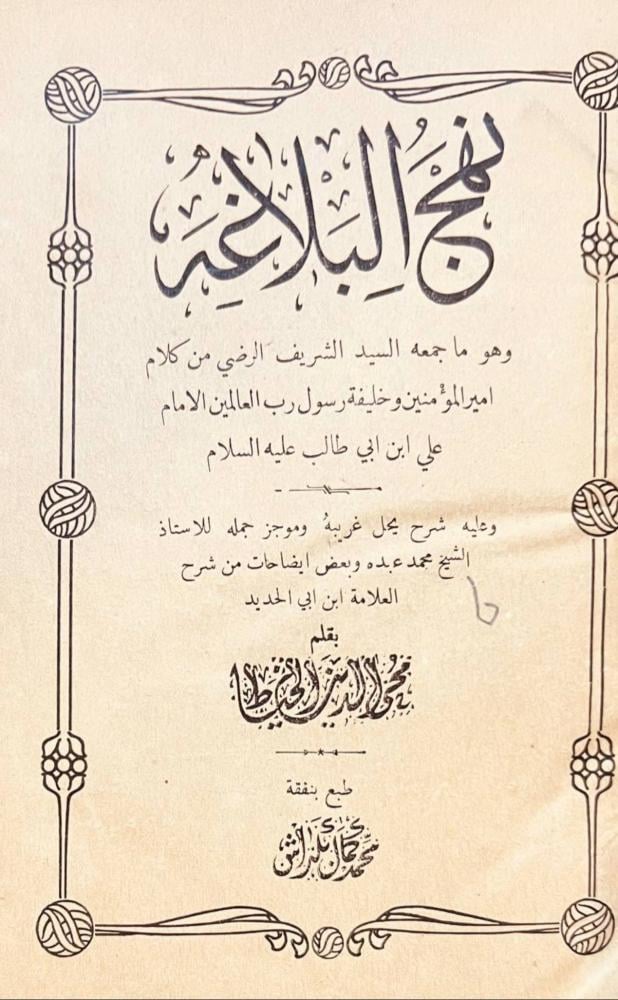 نهج البلاغه
وهو ما جمعه السيد الشريف الرضي من كلام
امير المؤمنين وخليفة رسول رب العالمين الامام
علي ابن ابي طالب عليه السلام
وعليه شرح يحل غريبهُ وموجز جمله للاستاذ
الشيخ محمد عبده وبعض ايضاحات من شرح
العلامة ابن ابي الحديد
بقلم
محيي الدين الخياط
طبع بنفقة
محمد كمال بكداش